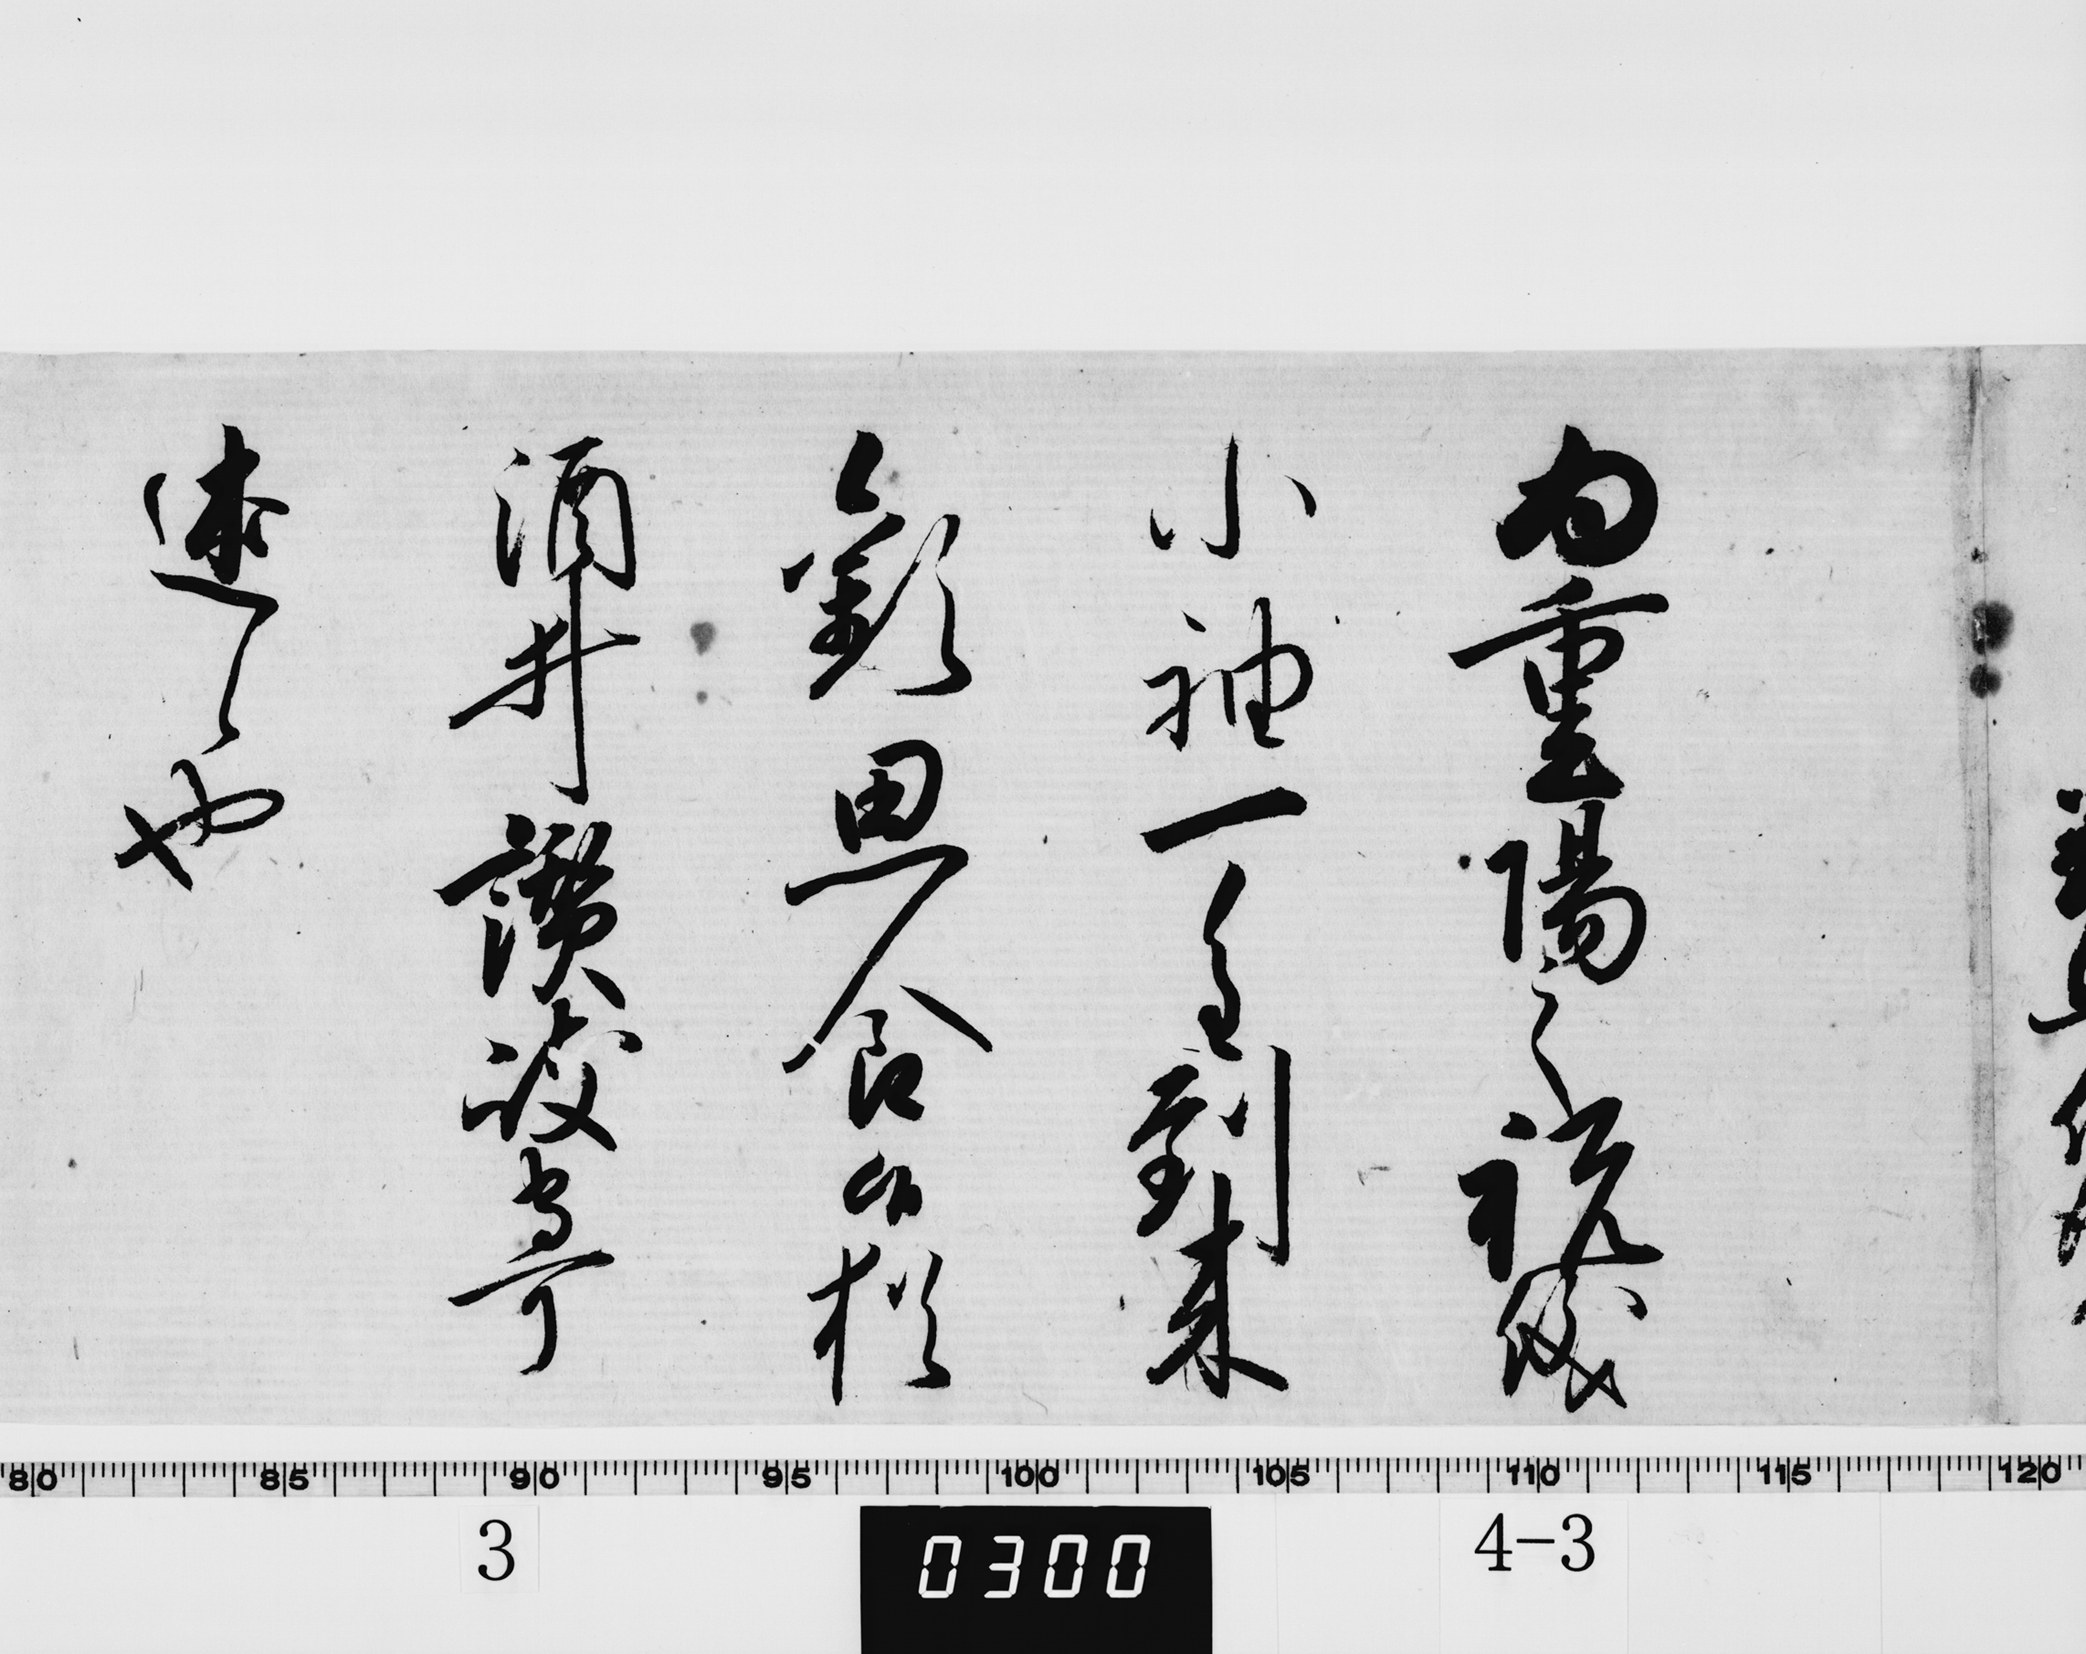 為重陽之祝儀
小袖一重到来
歓思食候猶
酒井讃岐守可
述之也
80 85 90 95 100 105 110 115 120
3
0300
4-3